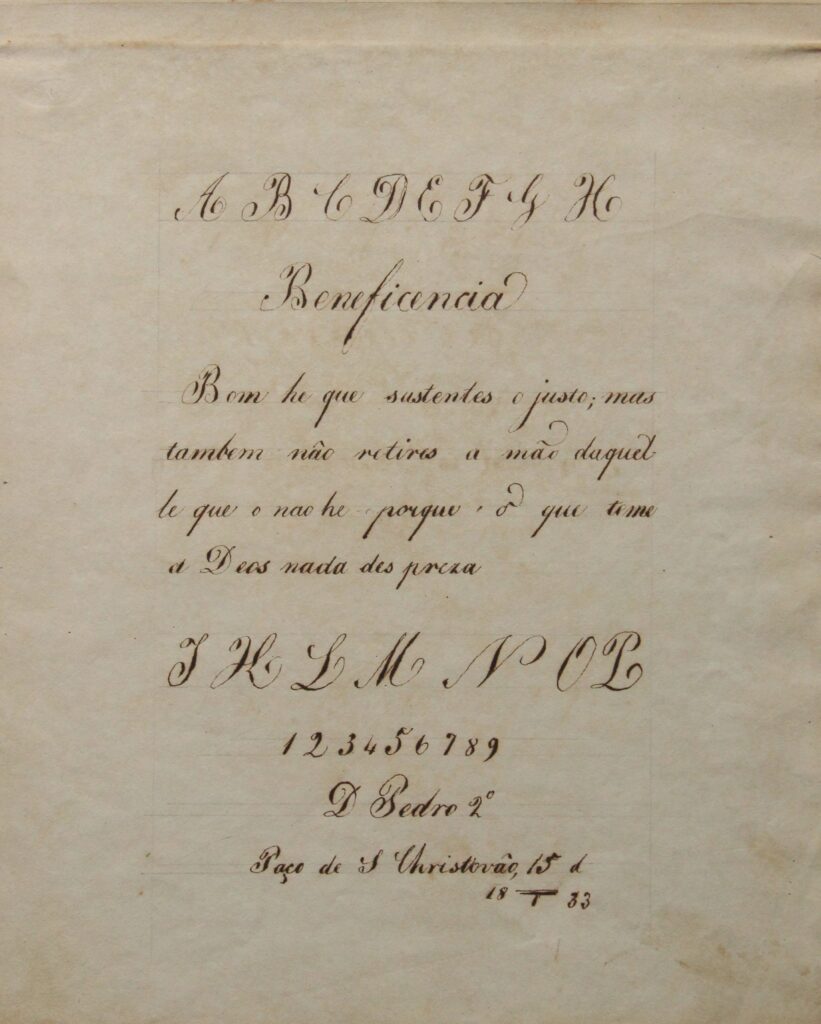 A B C D E F G H
Beneficencia
Bom he que sustentes o justo; mas
tambem não retires a mão daquel
le que o nao he porque o que teme
a Deos nada des preza
I K L M N O P
1 2 3 4 5 6 7 8 9
D Pedro 2º
Paço de S Christovão, 15 d
18 33